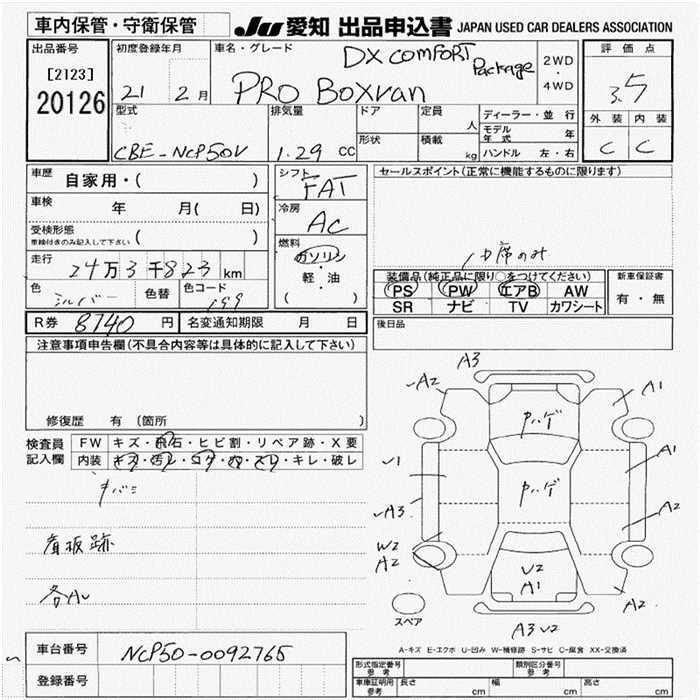 車内保管・守衛保管
JU 愛知 出品申込書 JAPAN USED CAR DEALERS ASSOCIATION
出品番号
[2123]
20126
初度登録年月
21 2月
車名・グレード
DX COMFORT Package
PRO Boxvan
2WD
・
4WD
評価点
3.5
外装 内装
C C
型式
CBE-NCP50V
排気量
1.29 cc
ドア
形状
定員
人
積載
kg
ディーラー・並行
モデル年式 年
ハンドル 左・右
車歴 自家用・( )
車検 年 月( 日)
受検形態
車検付きのみ記入して下さい ( )
走行 24万3千823km
色 シルバー 色替 色コード 199
R券 8740 円 名変通知期限 月 日
シフト
FAT
冷房
AC
燃料
ガソリン
・
軽・油
( )
セールスポイント(正常に機能するものに限ります)
席のみ
装備品(純正品に限り○をつけてください)
PS PW エアB AW
SR ナビ TV カワシート
新車保証書
有・無
後日品
注意事項申告欄(不具合内容等は具体的に記入して下さい)
修復歴 有 (箇所 )
検査員記入欄
FW キズ・飛石・ヒビ割・リペア跡・X要
内装 キズ・汚レ・コゲ・穴・スリ・キレ・破レ
看板跡
A3
A2
A1
ハゲ
A1
ハゲ
A3
A2
W2
A2
U2
A1
A2
スペア
A3 U2
A-キズ E-エクボ U-凹み W-補修跡 S-サビ C-腐食 XX-交換済
車台番号 NCP50-0092765
登録番号
形式指定番号 参考
類別区分番号 参考
車庫証明用 参考
長さ cm 幅 cm 高さ cm